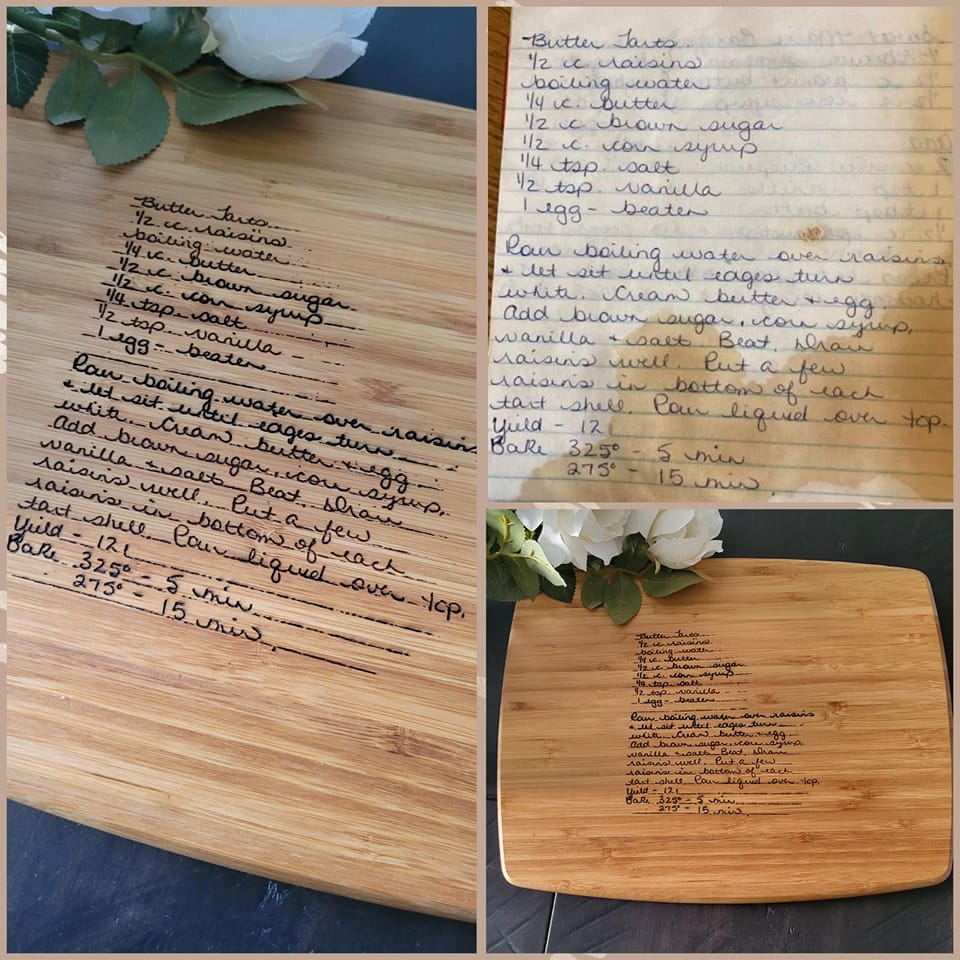 Butter Tarts
1/2 c. raisins
boiling water
1/4 c. butter
1/2 c brown sugar
1/2 c. corn syrup
1/4 tsp. salt
1/2 tsp. vanilla
1 egg - beaten
Pour boiling water over raisins
+ let sit until edges turn
white. Cream butter + egg
Add brown sugar, corn syrup,
vanilla + salt. Beat. Drain
raisins well. Put a few
raisins in bottom of each
tart shell. Pour liquid over top.
Yield - 12
Bake 325° - 5 min
275° - 15 min.
Butter Tarts
1/2 c. raisins
boiling water
1/4 c. butter
1/2 c brown sugar
1/2 c. corn syrup
1/4 tsp. salt
1/2 tsp. vanilla
1 egg - beaten
Pour boiling water over raisins
+ let sit until edges turn
white. Cream butter + egg
Add brown sugar, corn syrup,
vanilla + salt. Beat. Drain
raisins well. Put a few
raisins in bottom of each
tart shell. Pour liquid over top.
Yield - 12
Bake 325° - 5 min
275° - 15 min.
Butter Tarts
1/2 c. raisins
boiling water
1/4 c. butter
1/2 c brown sugar
1/2 c. corn syrup
1/4 tsp. salt
1/2 tsp. vanilla
1 egg - beaten
Pour boiling water over raisins
+ let sit until edges turn
white. Cream butter + egg
Add brown sugar, corn syrup,
vanilla + salt. Beat. Drain
raisins well. Put a few
raisins in bottom of each
tart shell. Pour liquid over top.
Yield - 12
Bake 325° - 5 min
275° - 15 min.